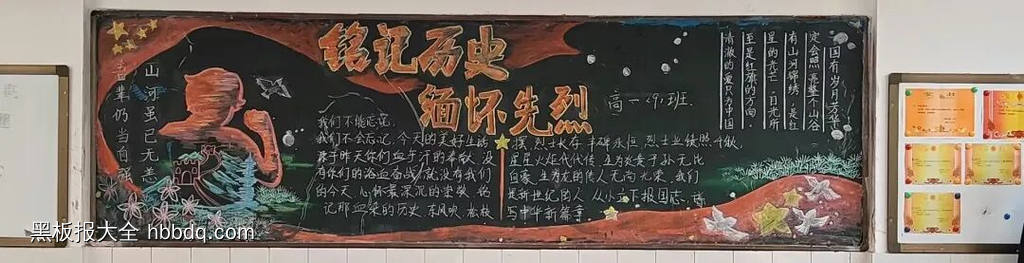 铭记历史
缅怀先烈
高一(9)班
山河虽已无恙
吾辈仍当自强
我们不能忘记,
我们不会忘记,今天的美好生活
源于昨天你们血与汗的奉献,没
有你们的浴血奋战就没有我们
的今天,心怀最深沉的崇敬,铭
记那血染的历史,东风吹,松枝
摆,烈士长存,丰碑永恒,烈士业绩照千秋,
星星火炬代代传,生为炎黄子孙无比
自豪,生为龙的传人无尚光荣,我们
是新世纪的人,从小立下报国志,谱
写中华新篇章
国有岁月芳华,
定会照亮整个山谷
有山河锦绣,是红
星的光芒,目光所
至是红旗的方向,
清澈的爱只为中国
黑板报大全 hbbdq.com